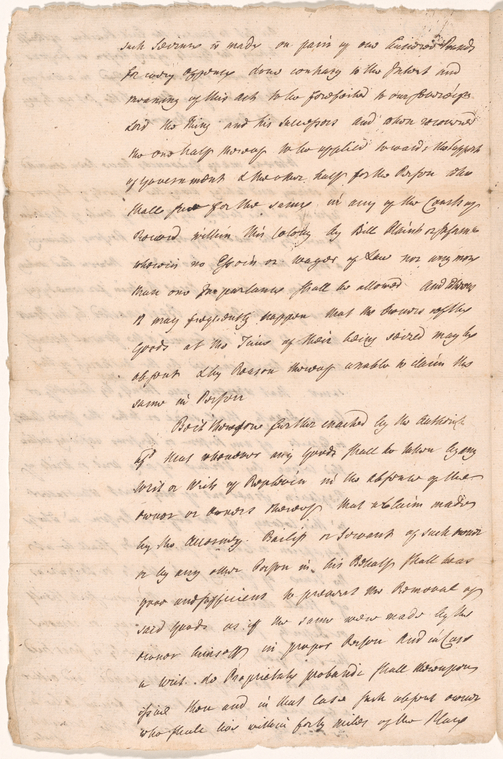 such Seizure is made on pain of one hundred Pounds
for every Offence done contrary to the Intent and
meaning of this Act to be forfeited to our Sovereign
Lord the King and his Successors and when recovered
the one half thereof to be applied towards the Support
of Government & the other half for the Person who
shall sue for the same in any of the Courts of
Record within this Colony by Bill Plaint or
wherein no Essoin or wager of Law nor any more
than one Imparlance shall be allowed And Whereas
it may frequently happen that the Owners of the
Goods at the Time of their being seized may be
absent & by Reason thereof unable to claim the
same in Person
Be it therefore further enacted by the Authority
afs.d that whenever any Goods shall be taken by any
Writ or Writs of Replevin in the absence of the
owner or owners thereof that a Claim made
by the Attorney Bailif or Servant of such owner
or by any other Person in his Behalf shall be as
good and sufficient to prevent the Removal of
said Goods as if the same were made by the
owner himself in proper Person And in Case
a Writ de Proprietate probanda shall thereupon
issue then and in that Case such absent owner
who shall live within forty miles of the Place